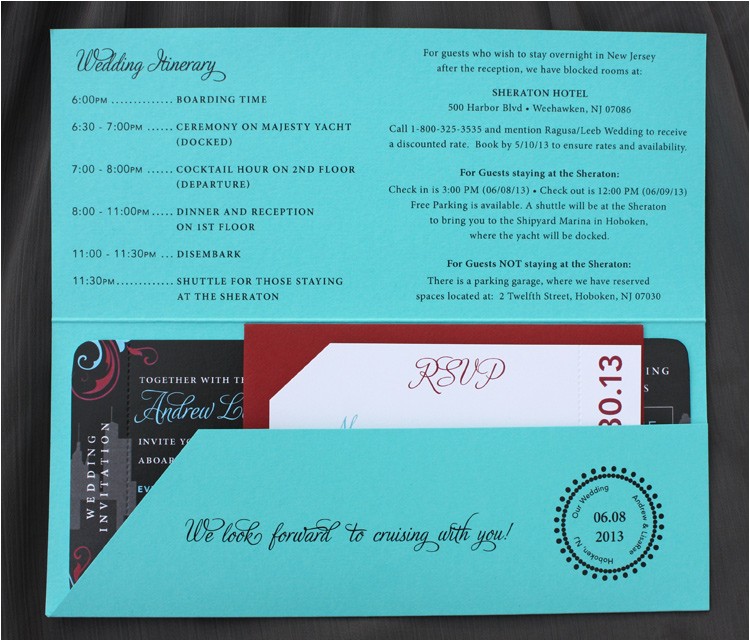 Wedding Itinerary
6:00PM ............. BOARDING TIME
6:30 - 7:00PM ...... CEREMONY ON MAJESTY YACHT
(DOCKED)
7:00 - 8:00PM ...... COCKTAIL HOUR ON 2ND FLOOR
(DEPARTURE)
8:00 - 11:00PM ..... DINNER AND RECEPTION
ON 1ST FLOOR
11:00 - 11:30PM .... DISEMBARK
11:30PM ............ SHUTTLE FOR THOSE STAYING
AT THE SHERATON
For guests who wish to stay overnight in New Jersey
after the reception, we have blocked rooms at:
SHERATON HOTEL
500 Harbor Blvd • Weehawken, NJ 07086
Call 1-800-325-3535 and mention Ragusa/Leeb Wedding to receive
a discounted rate. Book by 5/10/13 to ensure rates and availability.
For Guests staying at the Sheraton:
Check in is 3:00 PM (06/08/13) • Check out is 12:00 PM (06/09/13)
Free Parking is available. A shuttle will be at the Sheraton
to bring you to the Shipyard Marina in Hoboken,
where the yacht will be docked.
For Guests NOT staying at the Sheraton:
There is a parking garage, where we have reserved
spaces located at: 2 Twelfth Street, Hoboken, NJ 07030
WEDDING
INVITATION
TOGETHER WITH
Andrew
INVITE
ABOAR
RSVP
30.13
ING
S
We look forward to cruising with you!
Our Wedding
Andrew & LisaRae
06.08
2013
Hoboken, NJ